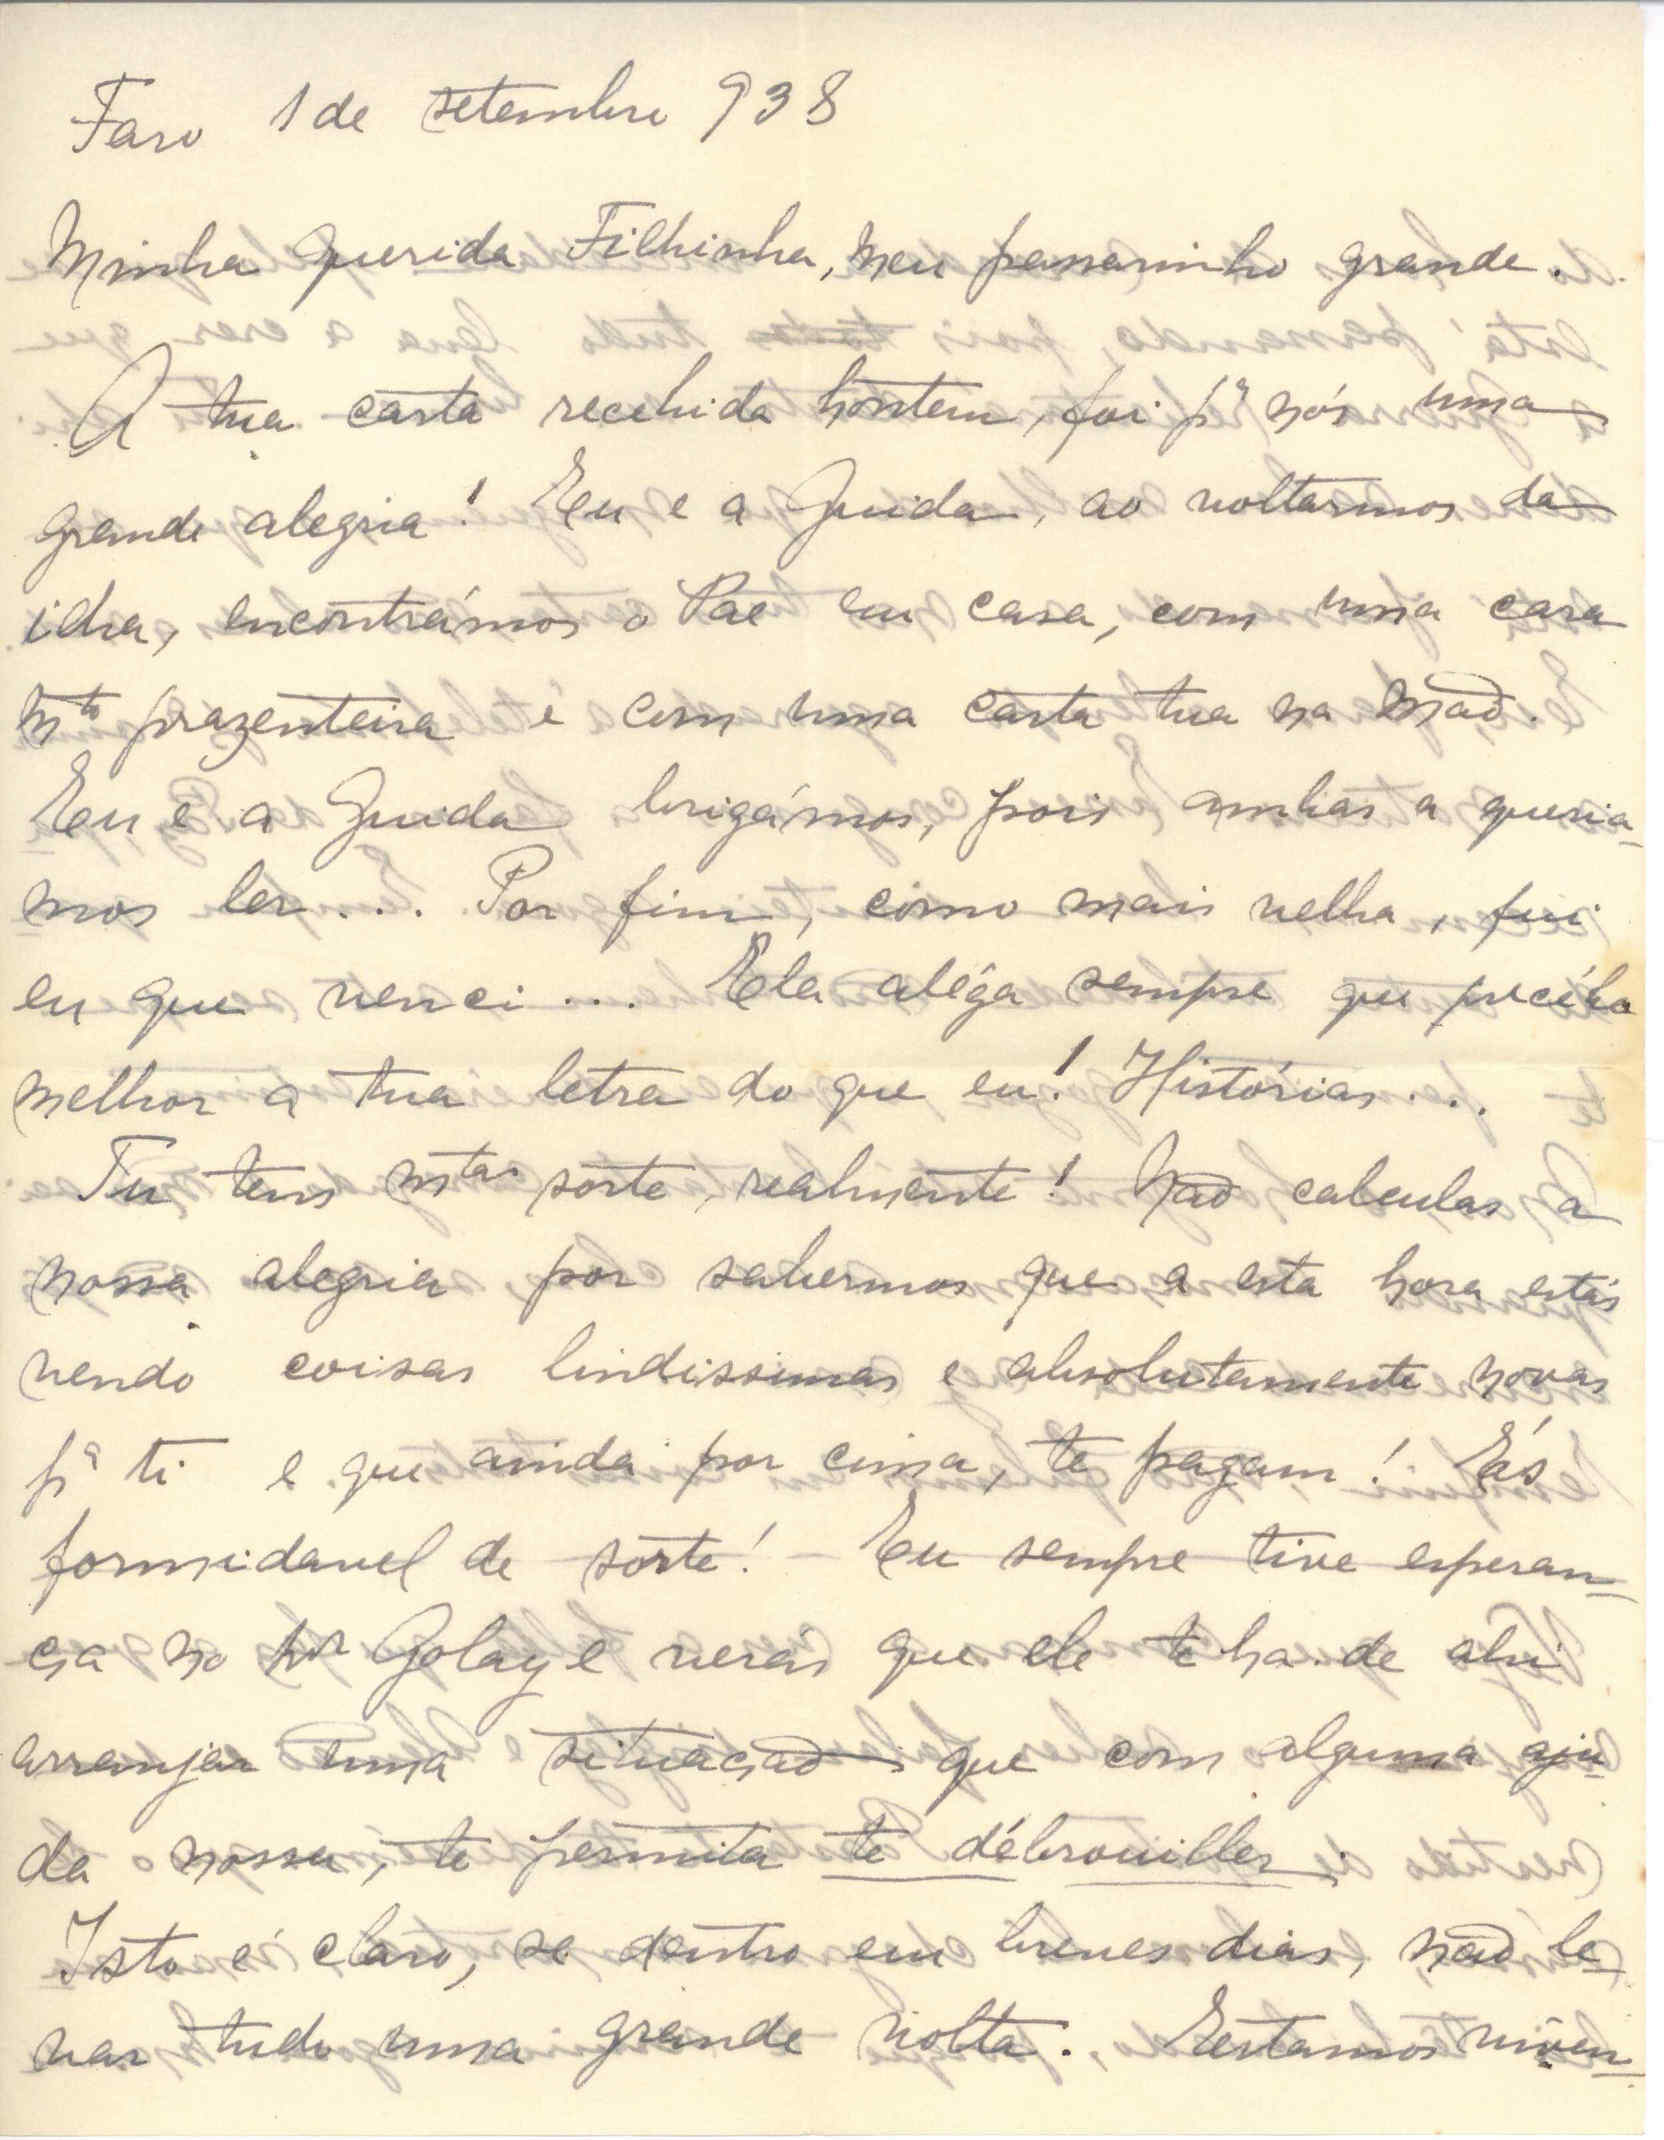 Faro 1 de setembro 938
Minha querida Filhinha, meu passarinho grande.
A tua carta recebida hontem, foi pª nós uma
grande alegria! Eu e a Guida, ao voltarmos da
ilha, encontrámos o Pae em casa, com uma cara
mto prazenteira e com uma carta tua na mão.
Eu e a Guida brigámos, pois ambas a queria-
mos ler... Por fim, como mais velha, fui
eu que venci... Ela aléga sempre que percébe
melhor a tua letra do que eu! Histórias...
Tu tens mta sorte, realmente! Não calculas a
nossa alegria por sabermos que a esta hora estás
vendo coisas lindissimas e absolutamente novas
pª ti e que ainda por cima, te pagam! És
formidavel de sorte! - Eu sempre tive esperan-
ça no Mr Golay e verás que ele te ha-de ahi
arranjar uma situação que com alguma aju-
da nossa, te permita te débrouiller.
Isto é claro, se dentro em breves dias, não le-
var tudo uma grande volta. Estamos viven-